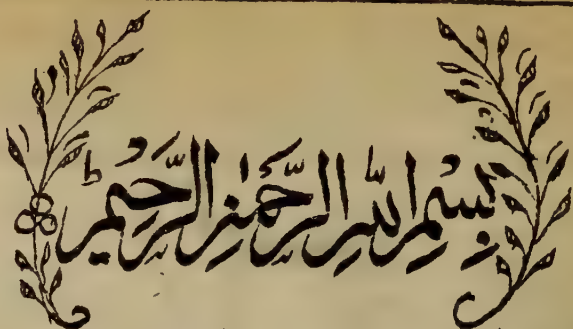 بِسْمِ اللّٰهِ الرَّحْمٰنِ الرَّحِيْمِ ؕ